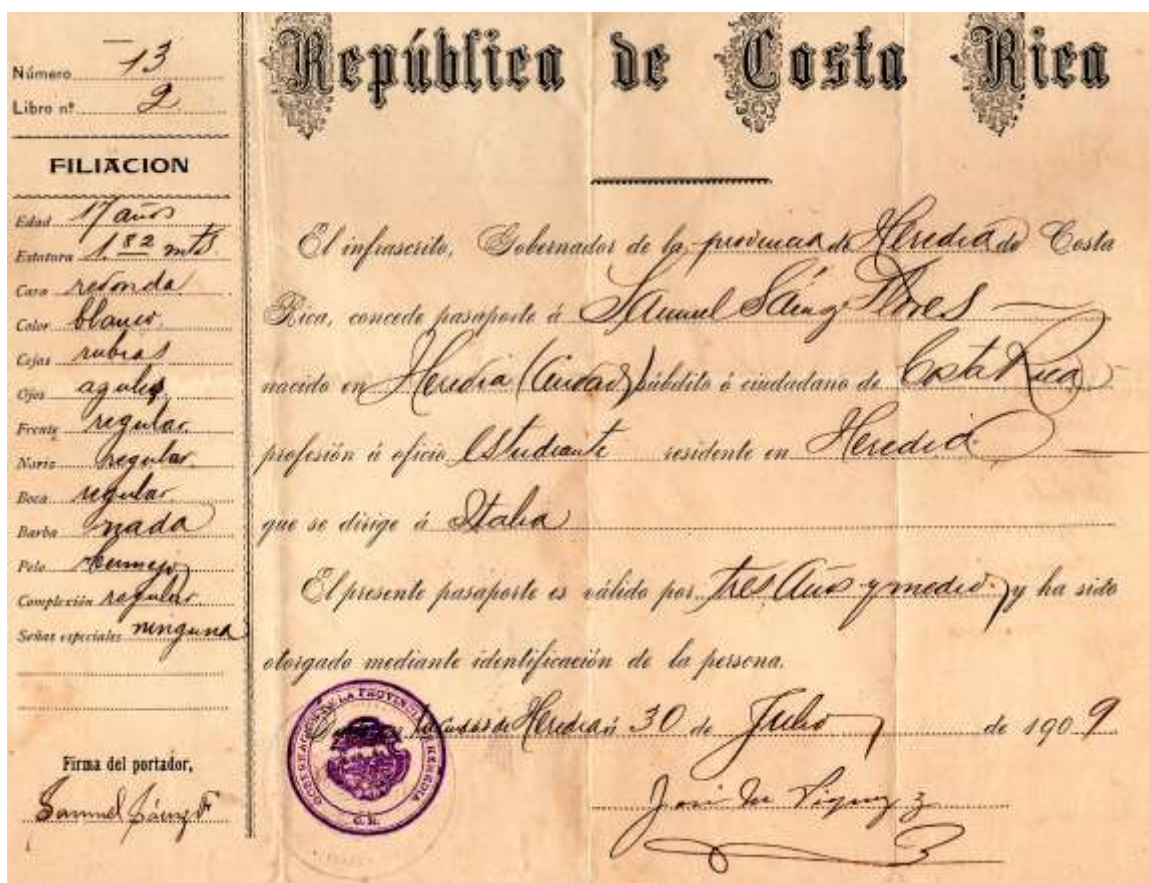 Número 13
Libro nº 2
FILIACION
Edad 17 años
Estatura 1.82 mts
Cara redonda
Color blanco
Cejas rubias
Ojos azules
Frente regular
Nariz regular
Boca regular
Barba nada
Pelo bermejo
Complexión regular
Señas especiales ninguna
Firma del portador,
Samuel Sáenz F
República de Costa Rica
El infrascrito, Gobernador de la provincia de Heredia de Costa
Rica, concede pasaporte á Samuel Sáenz Flores
nacido en Heredia (Ciudad) súbdito ó ciudadano de Costa Rica
profesión ú oficio Estudiante residente en Heredia
que se dirige á Italia
El presente pasaporte es válido por tres Años y medio y ha sido
otorgado mediante identificación de la persona.
Heredia á 30 de Julio de 1909
GOBERNACION DE LA PROVINCIA HEREDIA
C.R.